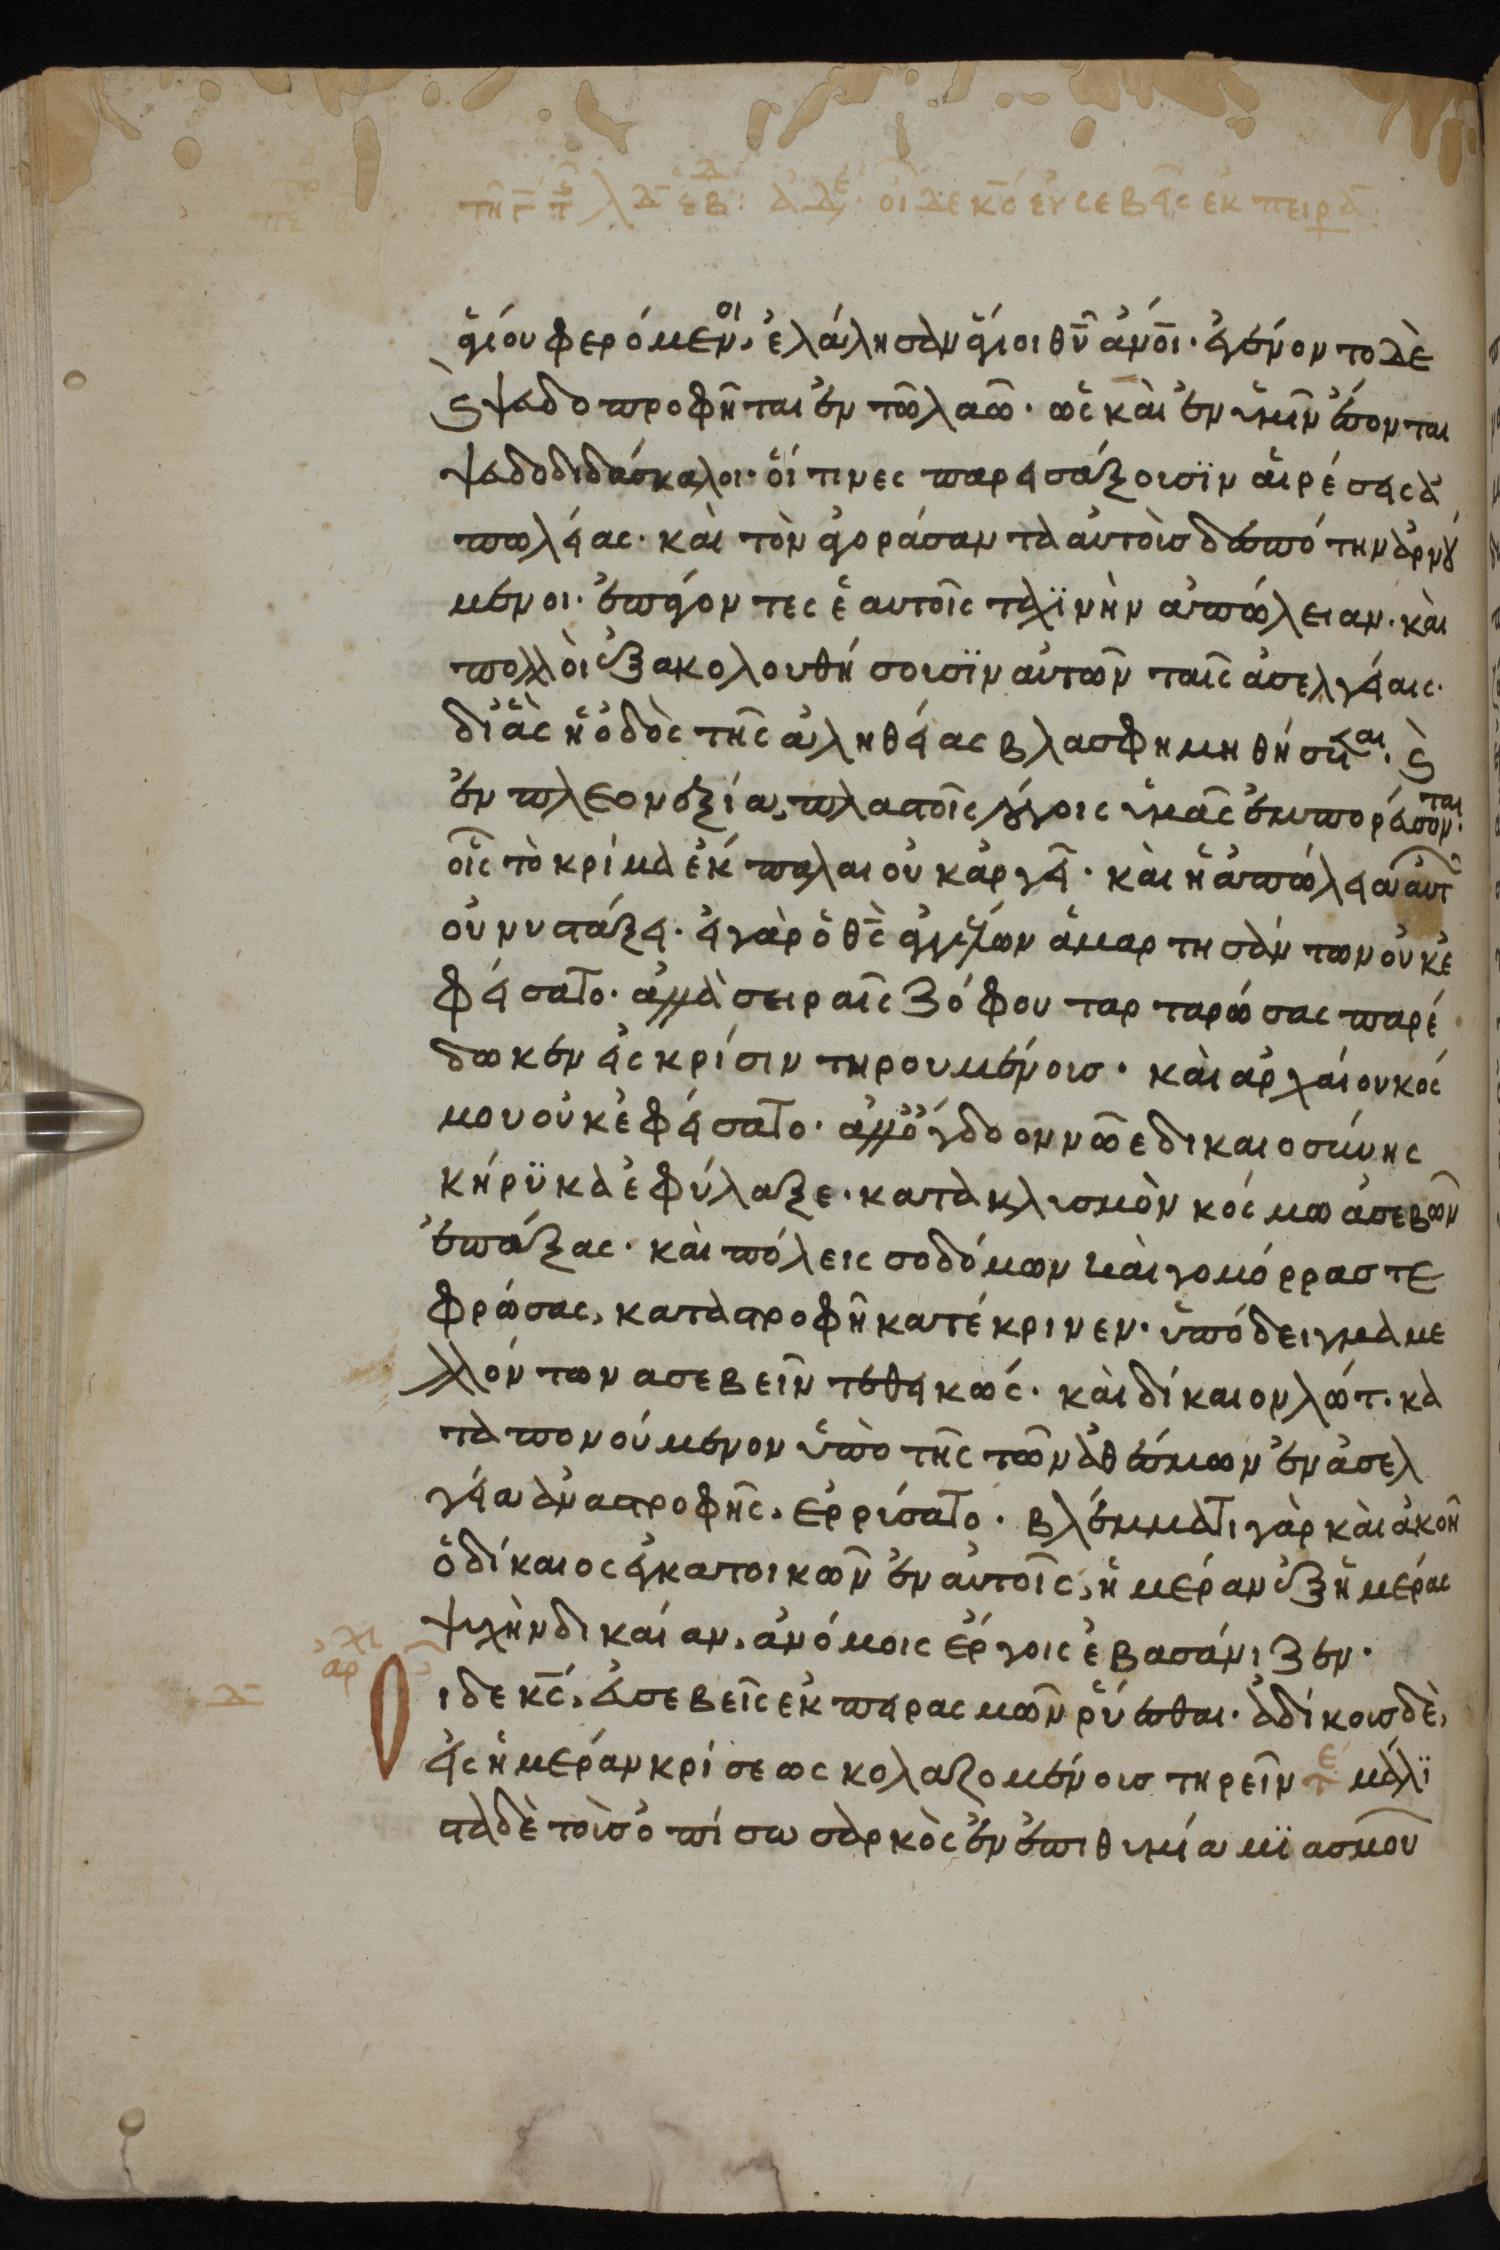 τῆ γ̅ τ̅ λδ ἑβ: ἀδε· οἶδε κ̅ς εὐσεβεῖς ἐκ πειρα
ἁγίου φερόμενοι, ἐλάλησαν ἅγιοι θ̅υ̅ ἀ̅ν̅ο̅ι̅· ἐγένοντο δὲ
ϗ ψευδοπροφῆται ἐν τῶ λαῶ· ὡς καὶ ἐν ὑμῖν ἔσονται
ψευδοδιδάσκαλοι· οἵτινες παρεισάξουσϊν αἱρέσεις ἀ
πωλείας· καὶ τὸν ἀγοράσαντα αὐτοὺς δεσπότην ἀρνού
μενοι· ἐπάγοντες ἑαυτοῖς ταχϊνὴν ἀπώλειαν· καὶ
πολλοὶ ἐξακολουθήσουσϊν αὐτῶν ταῖς ἀσελγείαις·
δι' ἃς ἡ ὁδὸς τῆς ἀληθείας βλασφημηθήσεται· ϗ
ἐν πλεονεξία, πλαστοῖς λόγοις ὑμᾶς ἐμπορεύσονται·
οἷς τὸ κρίμα ἔκπαλαι οὐκ ἀργεῖ· καὶ ἡ ἀπώλεια αὐτῶν
οὐ νυστάξει· εἰ γὰρ ὁ θ̅ς̅ ἀγγέλων ἁμαρτησάντων οὐκ ἐ
φείσατο· ἀλλὰ σειραῖς ζόφου ταρταρώσας παρέ
δωκεν εἰς κρίσιν τηρουμένους· καὶ ἀρχαίου κόσ
μου οὐκ ἐφείσατο· ἀλλ' ὄγδοον νῶε δικαιοσύνης
κήρϋκα ἐφύλαξε· κατακλυσμὸν κόσμω ἀσεβῶν
ἐπάξας· καὶ πόλεις σοδόμων καὶ γομόρρας τε
φρώσας, καταστροφῆ κατέκρινεν· ὑπόδειγμα με
λλόντων ασεβεῖν τεθεικώς· καὶ δίκαιον λώτ· κα
ταπονούμενον ὑπὸ τῆς τῶν ἀθέσμων ἐν ἀσελ
γεία ἀναστροφῆς, ἐρρύσατο· βλέμματι γὰρ καὶ ἀκοῆ
ὁ δίκαιος ἐγκατοικῶν ἐν αὐτοῖς, ἡμέραν ἐξ ἡμέρας
ψυχὴν δικαίαν, ἀνόμοις ἔργοις ἐβασάνιζεν·
ἀρχ
Οιδε κ̅ς̅, εὐσεβεῖς ἐκ πειρασμῶν ῥύεσθαι· ἀδίκους δὲ,
εἰς ἡμέραν κρίσεως κολαζομένους τηρεῖν τε μάλϊ
στα δὲ τοὺς ὀπίσω σαρκὸς ἐν ἐπιθυμία μϊασμοῦ